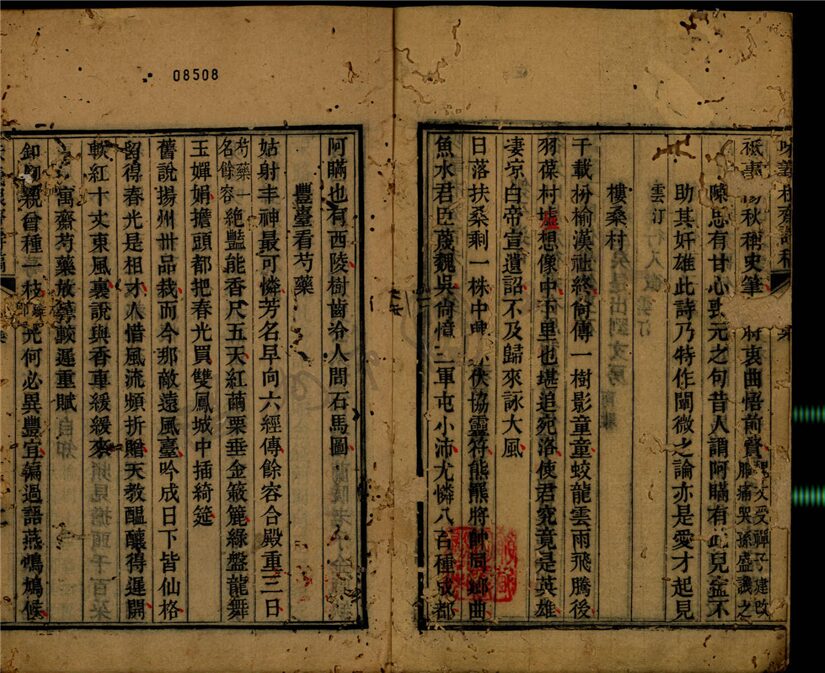 08508
秋稱史筆
衷曲悟前賢
陳思有甘心喪元之句昔人謂阿瞞有此兒益不
助其奸雄此詩乃特作闡微之論亦是愛才起見
樓桑村
千載枌榆漢社終尙傳一樹影童童蛟龍雲雨飛騰後
羽葆村墟想像中下里也堪追宛洛使君究竟是英雄
淒涼白帝宣遺詔不及歸來詠大風
日落扶桑剩一株中 伏協靈符熊羆將帥 曲
魚水君臣蔑魏吳尙憶三軍屯小沛尤憐八百種成都
阿瞞也有西陵樹齒冷人間石馬圖
豐臺看芍藥
姑射丰神最可憐芳名早向六經傳餘容合殿重三日
芍藥一名餘容
絕豔能香尺五天紅繭栗垂金簌簏綠盤龍舞
玉嬋娟擔頭都把春光買雙鳳城中插綺筵
舊說揚州卅品栽而今那敵遠風臺吟成日下皆仙格
留得春光是相才人惜風流頻折贈天教醞釀得遲開
軟紅十丈東風裏說與香車緩緩來
寓齋芍藥放等較遲重賦
卸 親曾種一枝 光何必異豐宜偏過語燕鳴鳩候